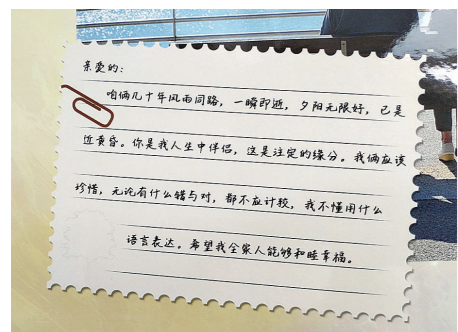 亲爱的:
咱俩几十年风雨同路，一瞬即逝，夕阳无限好，已是
近黄昏。你是我人生中伴侣，这是注定的缘分。我俩应该
珍惜，无论有什么错与对，都不应计较，我不懂用什么
语言表达。希望我全家人能够和睦幸福。